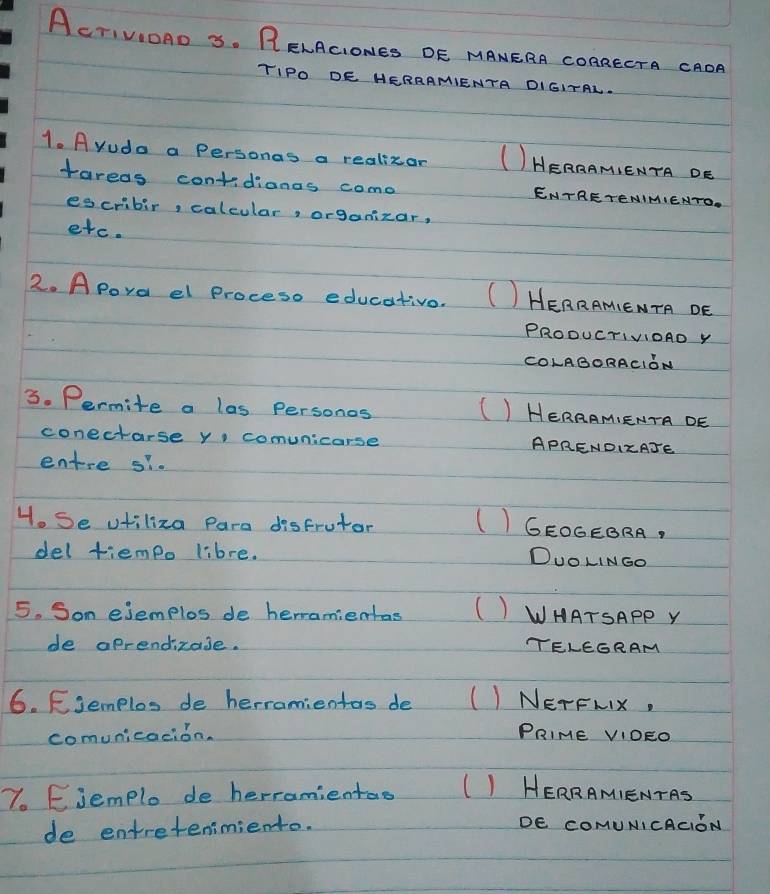 ACTIVIDAD 3. RELACIONES DE MANERA CORRECTA CADA
TIPO DE HERRAMIENTA DIGITAL.
1. Ayuda a Personas a realizar
tareas contidianas como
escribir, calcular, organizar,
etc.
( ) HERRAMIENTA DE
ENTRETENIMIENTO.
2. Apoya el Proceso educativo.
( ) HERRAMIENTA DE
PRODUCTIVIDAD Y
COLABORACIÓN
3. Permite a las Personas
conectarse y, comunicarse
entre sí.
( ) HERRAMIENTA DE
APRENDIZAJE
4. Se utiliza Para disfrutar
del tiempo libre.
( ) GEOGEBRA,
DUOLINGO
5. Son ejemplos de herramientas
de aprendizaje.
( ) WHATSAPP Y
TELEGRAM
6. Ejemplos de herramientas de
comunicación.
( ) NETFLIX,
PRIME VIDEO
7. Ejemplo de herramientas
de entretenimiento.
( ) HERRAMIENTAS
DE COMUNICACIÓN